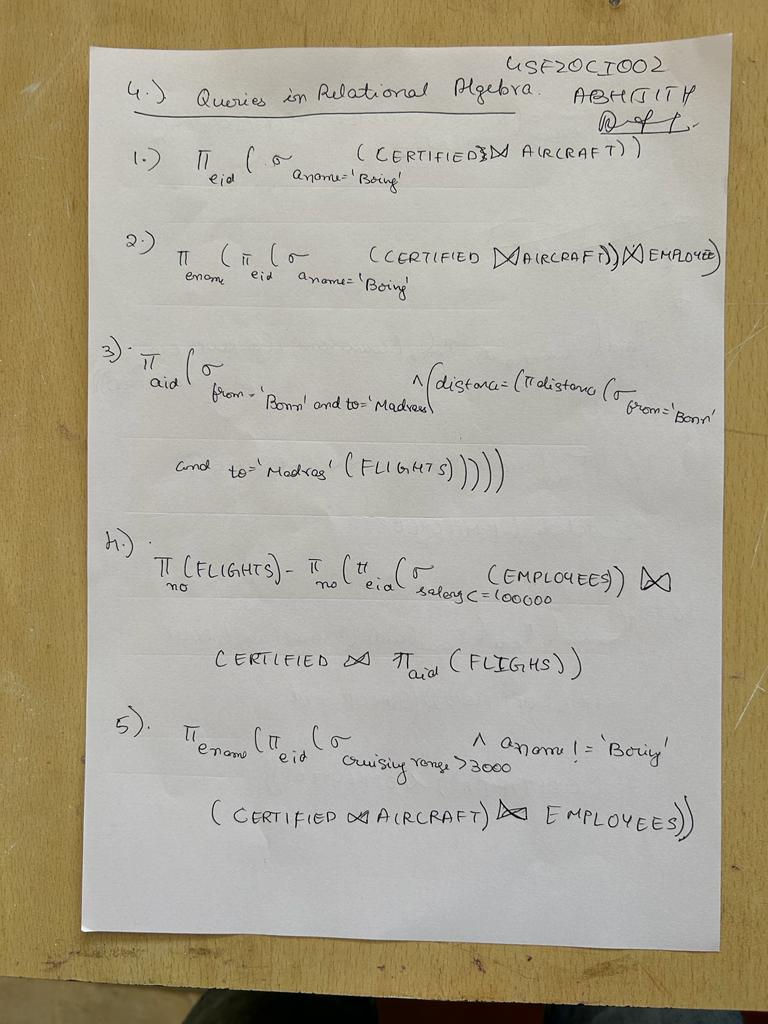 4SF20CI002
4.) Queries in Relational Algebra. ABHIJITH
1.) π eid ( σ aname='Boing' ( CERTIFIED ⋈ AIRCRAFT))
2.) π ename ( π eid ( σ aname='Boing' (CERTIFIED ⋈ AIRCRAFT)) ⋈ EMPLOYEE)
3) π aid ( σ from='Bonn' and to='Madras' ∧ (distance=(π distance (σ from='Bonn'
and to='Madras' (FLIGHTS)))))
4.) π no (FLIGHTS) - π no ( π eid ( σ salary<=100000 (EMPLOYEES)) ⋈
CERTIFIED ⋈ π aid (FLIGHS))
5). π ename (π eid ( σ cruising range >3000 ∧ aname != 'Boing'
( CERTIFIED ⋈ AIRCRAFT) ⋈ EMPLOYEES))